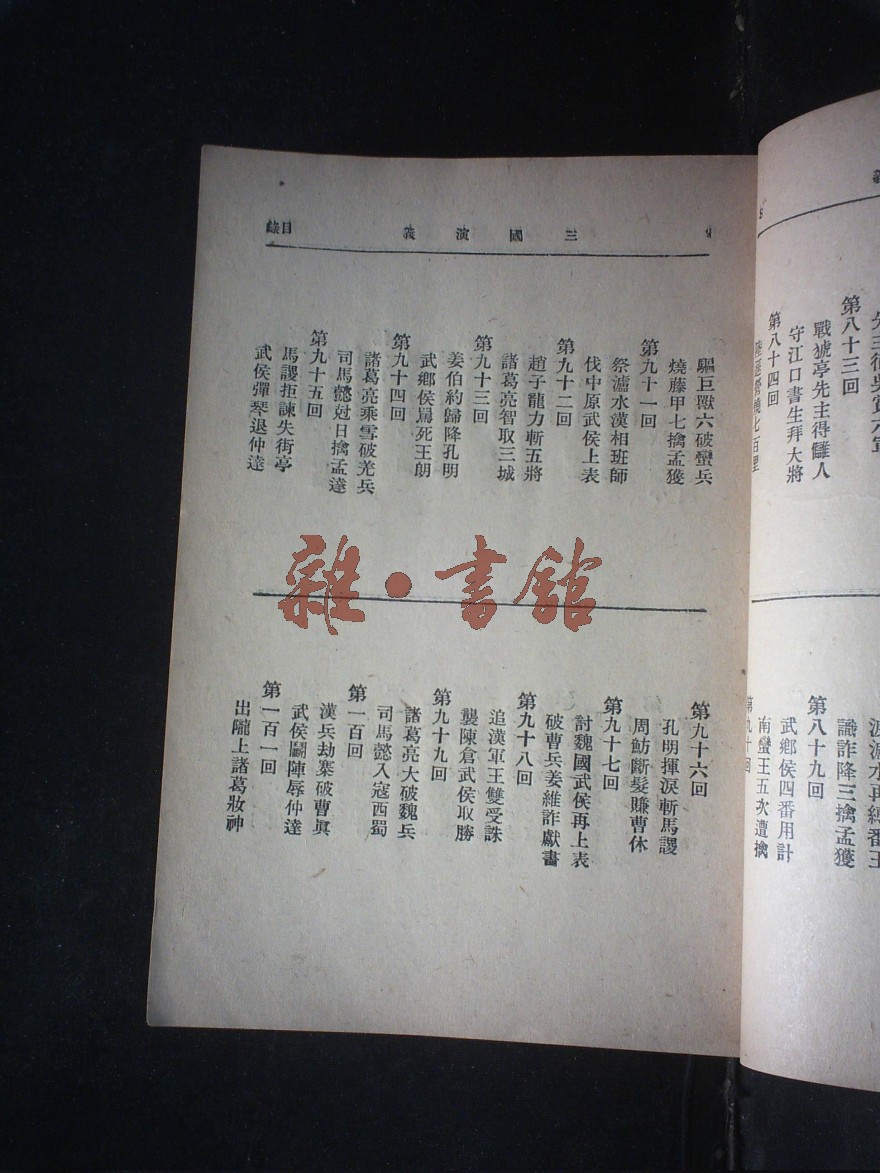 第八十三回
戰猇亭先主得讎人
守江口書生拜大將
第八十四回
識詐降三擒孟獲
第八十九回
武鄉侯四番用計
南蠻王五次遭擒
第九十回
三國演義
目錄
驅巨獸六破蠻兵
燒藤甲七擒孟獲
第九十一回
祭瀘水漢相班師
伐中原武侯上表
第九十二回
趙子龍力斬五將
諸葛亮智取三城
第九十三回
姜伯約歸降孔明
武鄉侯罵死王朗
第九十四回
諸葛亮乘雪破羌兵
司馬懿尅日擒孟達
第九十五回
馬謖拒諫失街亭
武侯彈琴退仲達
第九十六回
孔明揮淚斬馬謖
周魴斷髮賺曹休
第九十七回
討魏國武侯再上表
破曹兵姜維詐獻書
第九十八回
追漢軍王雙受誅
襲陳倉武侯取勝
第九十九回
諸葛亮大破魏兵
司馬懿入寇西蜀
第一百回
漢兵劫寨破曹眞
武侯鬭陣辱仲達
第一百一回
出隴上諸葛妝神
雜·書館